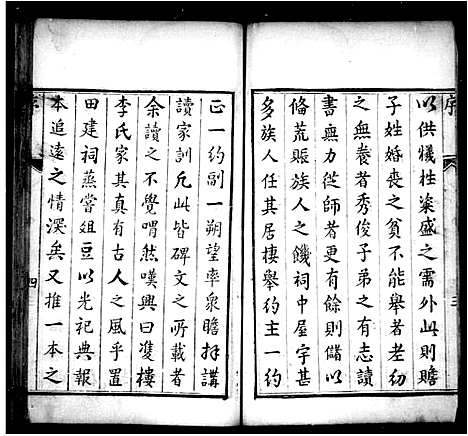 序
以供犧牲粢盛之需外此則贍
子姓婚喪之貧不能舉者老幼
之無養者秀俊子弟之有志讀
書無力從師者更有餘則儲以
俻荒賑族人之饑祠中屋宇甚
多族人任其居棲舉約主一約
三
正一約副一朔望率衆瞻拜講
讀家訓凡此皆碑文之所載者
余讀之不覺喟然嘆興曰雙樓
李氏家其真有古人之風乎置
田建祠蒸嘗俎豆以光祀典報
本追遠之情深矣又推一本之
四